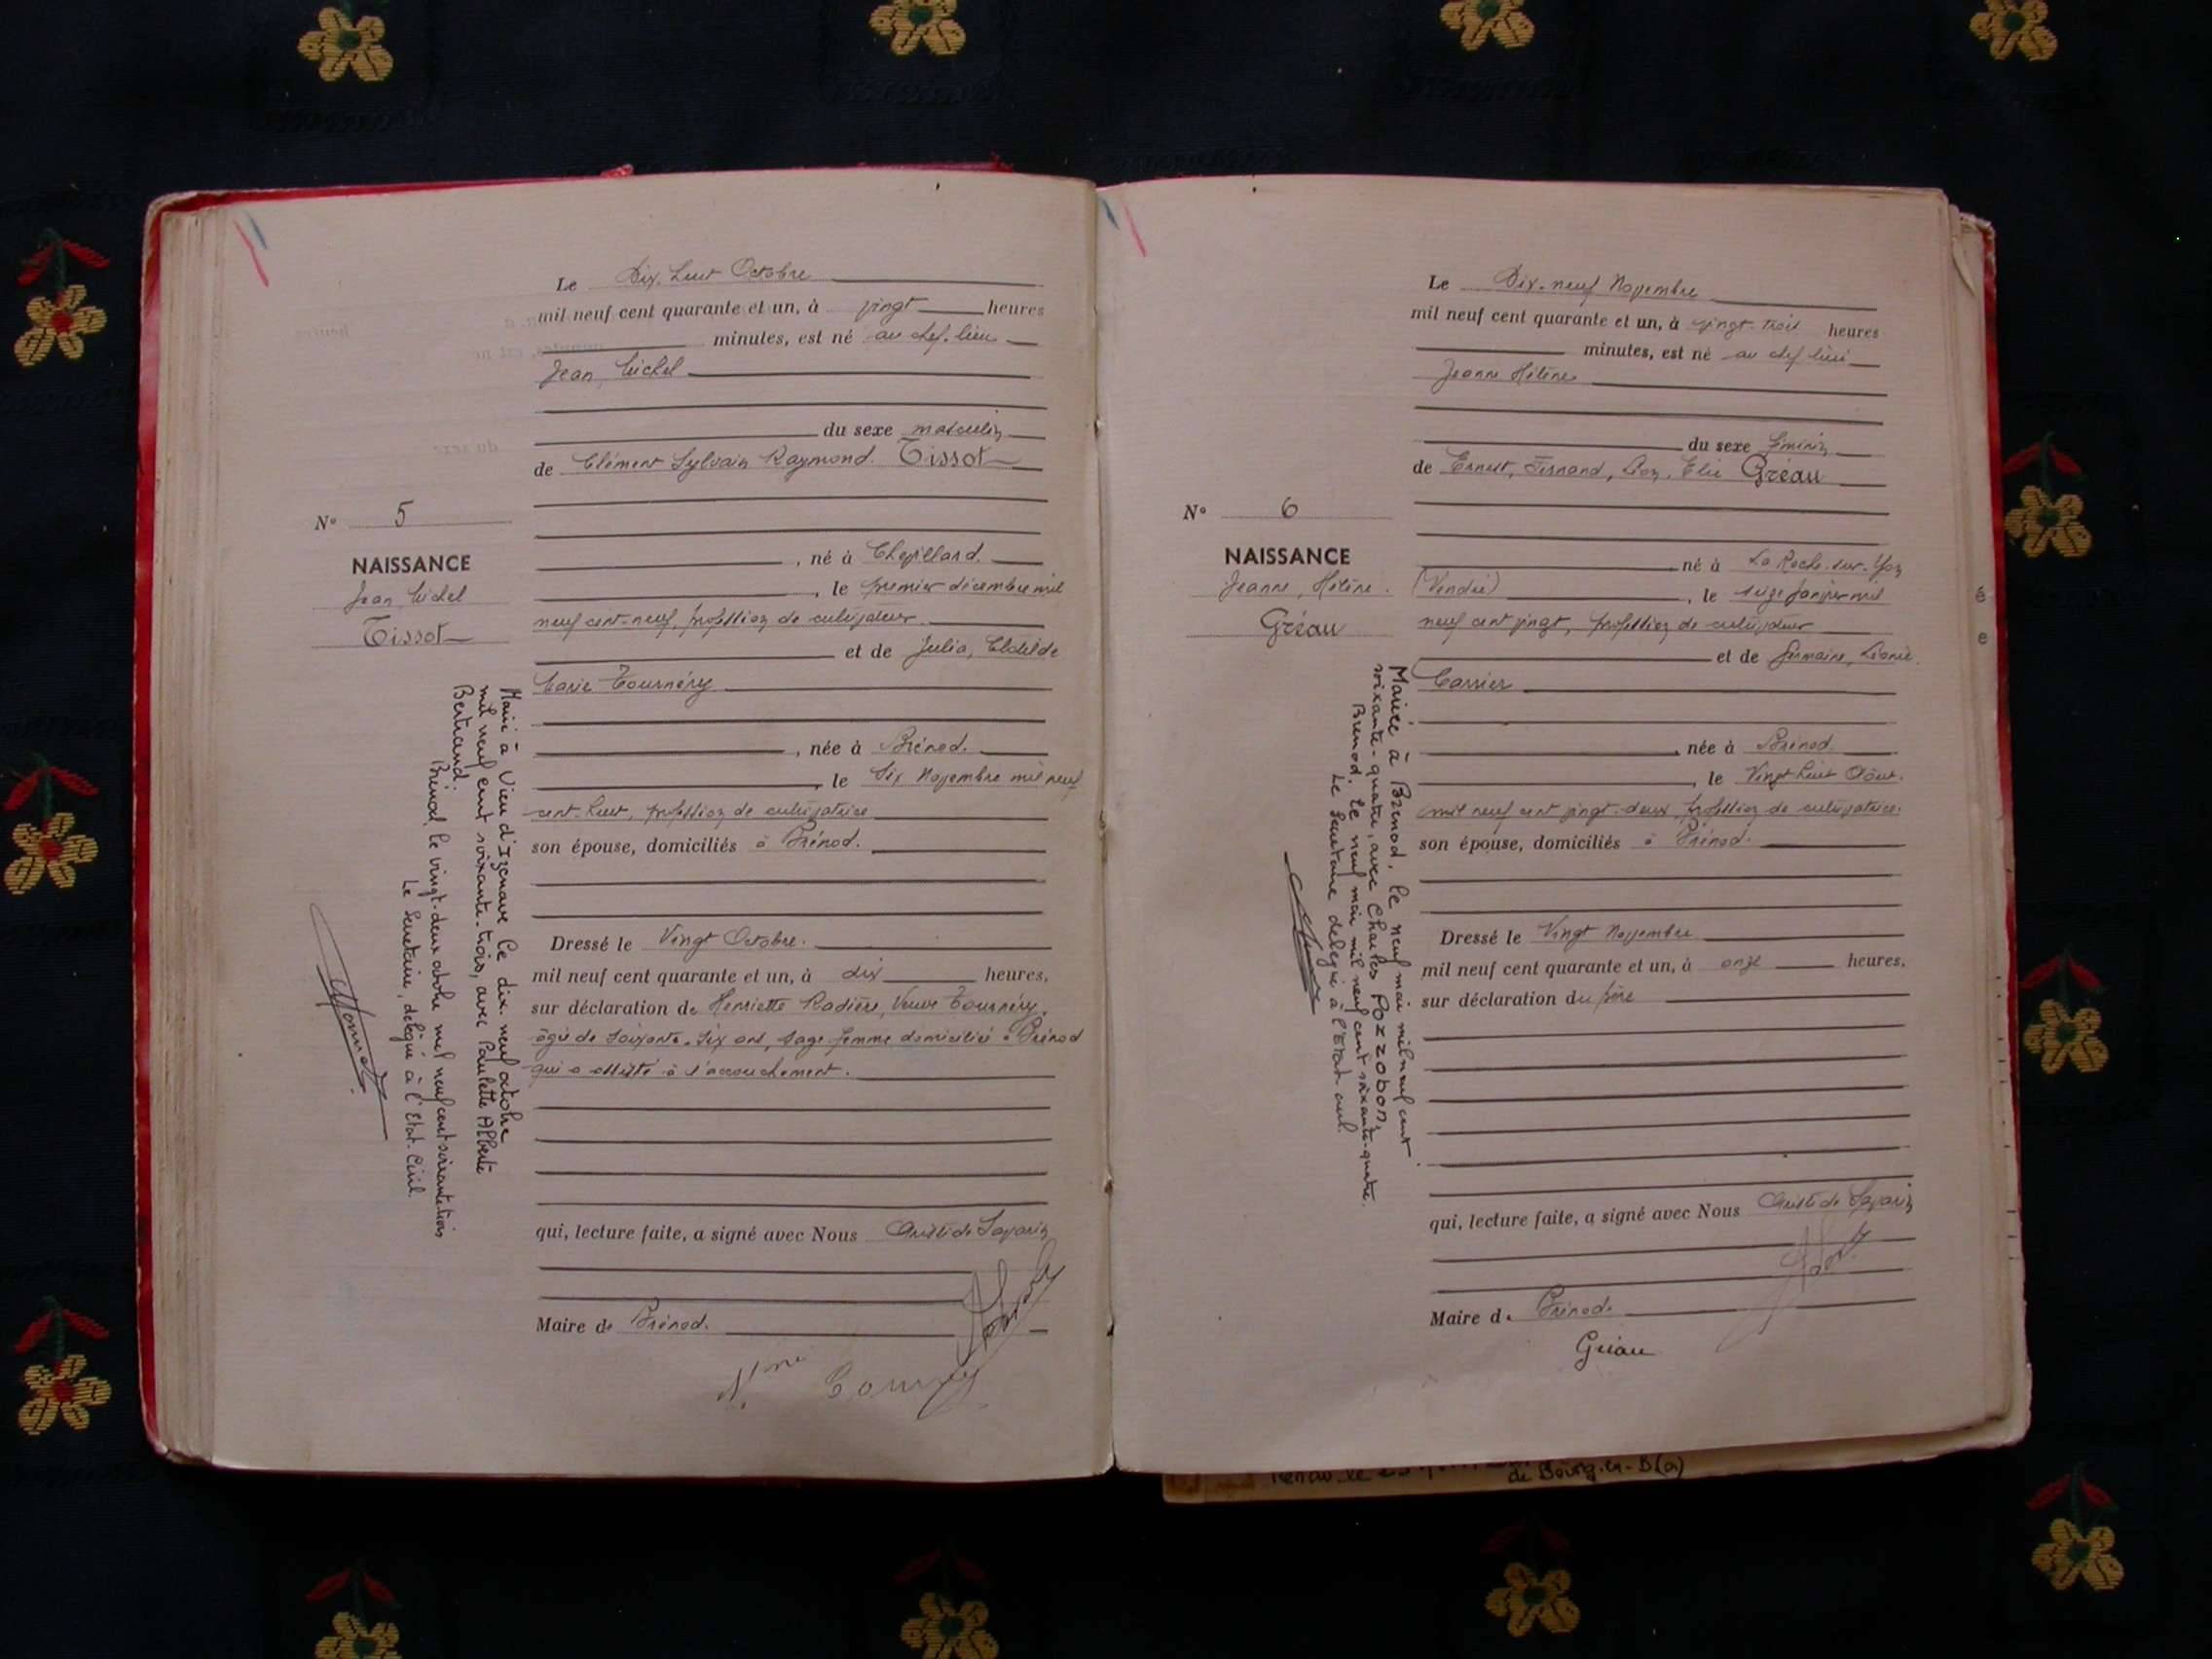 Le Dix-huit Octobre
mil neuf cent quarante et un, à vingt heures
minutes, est né au chef-lieu
Jean, Michel
du sexe masculin
de Clément Sylvain Raymond Tissot
N° 5
NAISSANCE
Jean Michel
Tissot
, né à Chevillard.
, le premier décembre mil
neuf cent-neuf, profession de cultivateur
et de Julia, Clotilde
Marie Tournéry
, née à Brénod.
le Six Novembre mil neuf
cent-huit, profession de cultivatrice
son épouse, domiciliés à Brénod.
Dressé le Vingt Octobre.
mil neuf cent quarante et un, à dix heures,
sur déclaration de Henriette Radière, Veuve Tournéry,
âgée de soixante-six ans, sage femme domiciliée à Brénod
qui a assisté à l'accouchement.
qui, lecture faite, a signé avec Nous Aristide Savarin
Maire de Brénod.
Marié à Vieu d'Izenave le dix-neuf octobre
mil neuf cent soixante-trois, avec Paulette Alberte
Bertrand.
Brénod, le vingt-deux octobre mil neuf cent soixante-trois
Le Secrétaire, délégué à l'Etat-Civil.
Le Dix-neuf Novembre
mil neuf cent quarante et un, à vingt-trois heures
minutes, est né au chef lieu
Jeanne Hélène
du sexe féminin
de Ernest, Fernand, Léon, Elie Gréau
N° 6
NAISSANCE
Jeanne, Hélène.
Gréau
né à La Roche-sur-Yon
(Vendée) , le seize janvier mil
neuf cent vingt, profession de cultivateur
et de Germaine, Léonie
Carrier
, née à Brénod
, le Vingt huit Août.
mil neuf cent vingt-deux, profession de cultivatrice.
son épouse, domiciliés à Brénod.
Dressé le Vingt Novembre
mil neuf cent quarante et un, à onze heures,
sur déclaration du père
qui, lecture faite, a signé avec Nous Aristide Savarin
Maire de Brénod.
Gréau
Mariée à Brenod, le neuf mai mil neuf cent
soixante-quatre, avec Charles Pozzobon,
Brenod, le neuf mai mil neuf cent soixante-quatre.
Le Secrétaire délégué à l'Etat civil.
de Bourg-en-B(a)